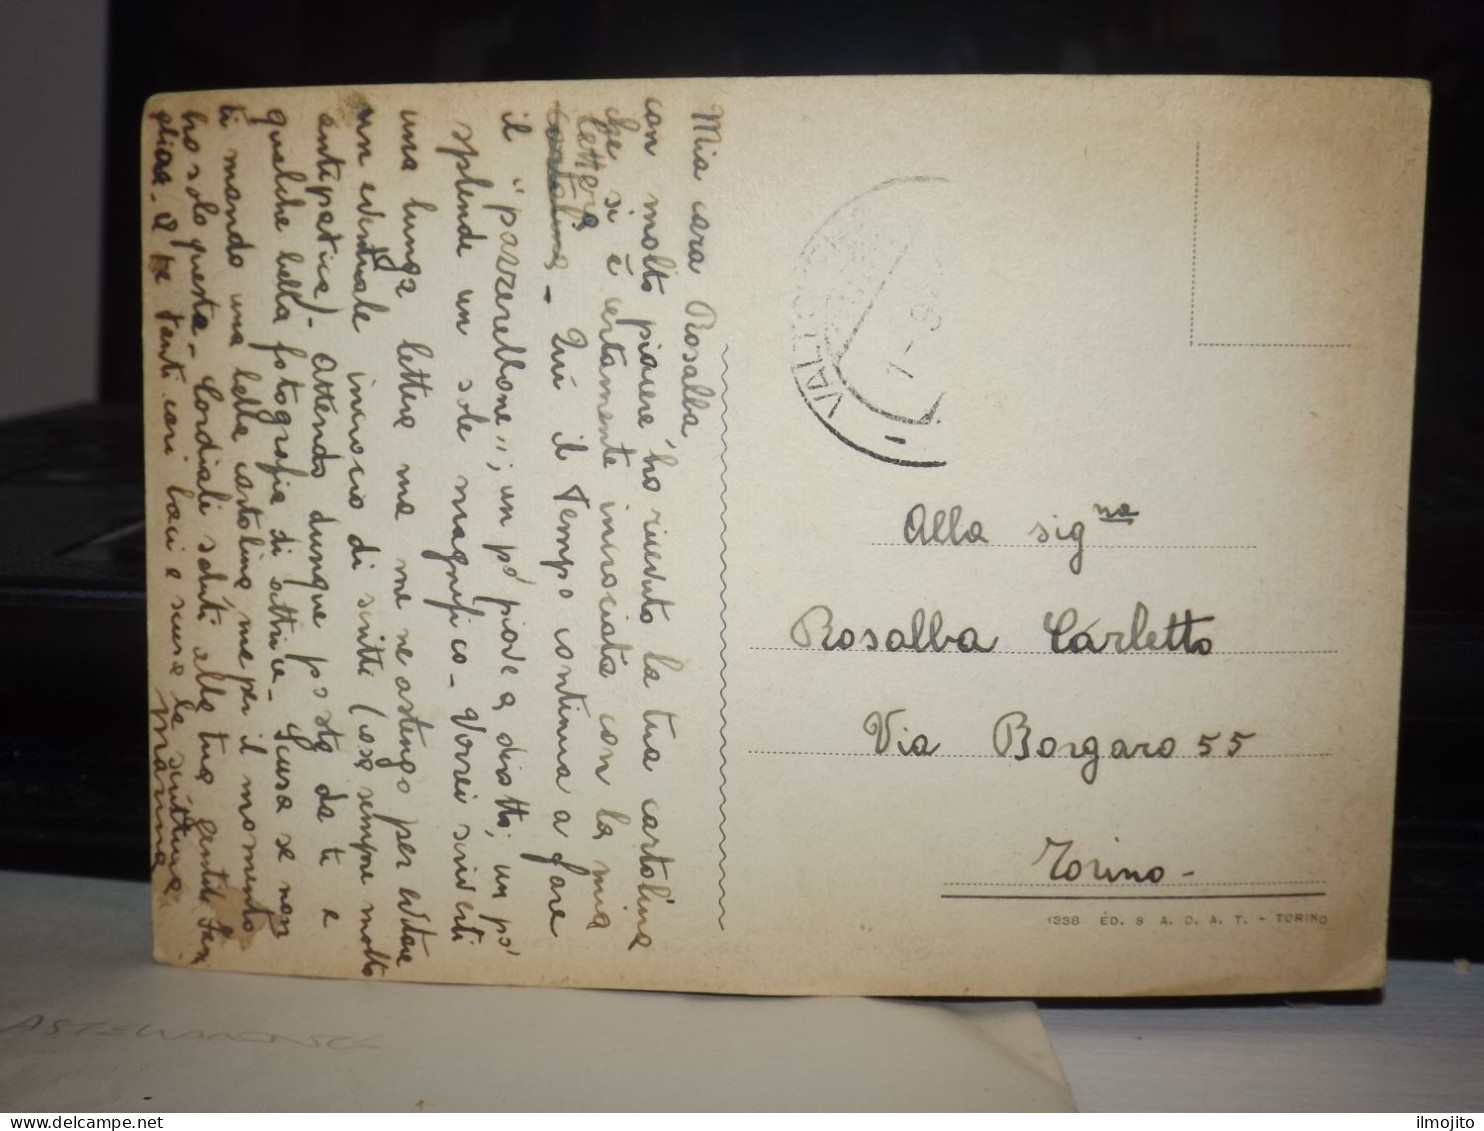 Mia cara Rosalba
con molto piacere ho ricevuto la tua cartolina
che si è certamente incrociata con la mia
lettera
cartolina - Qui il tempo continua a fare
il "pazzerellone"; un pò piove a dirotto, un pò
splende un sole magnifico - Vorrei scriverti
una lunga lettera ma me ne astengo per evitare
un eventuale incrocio di scritti (cosa sempre molto
antipatica) - Attendo dunque posta da te e
qualche bella fotografia di attrice - Scusa se non
ti mando una bella cartolina ma per il momento
ho solo questa - Cordiali saluti alla tua gentile fam
gliola - A te tanti cari baci e scusa la scrittura
Alla signa
Rosalba Carletto
Via Borgaro 55
Torino -
1238 ÉD. S. A. C. A. T. - TORINO
ilmojito